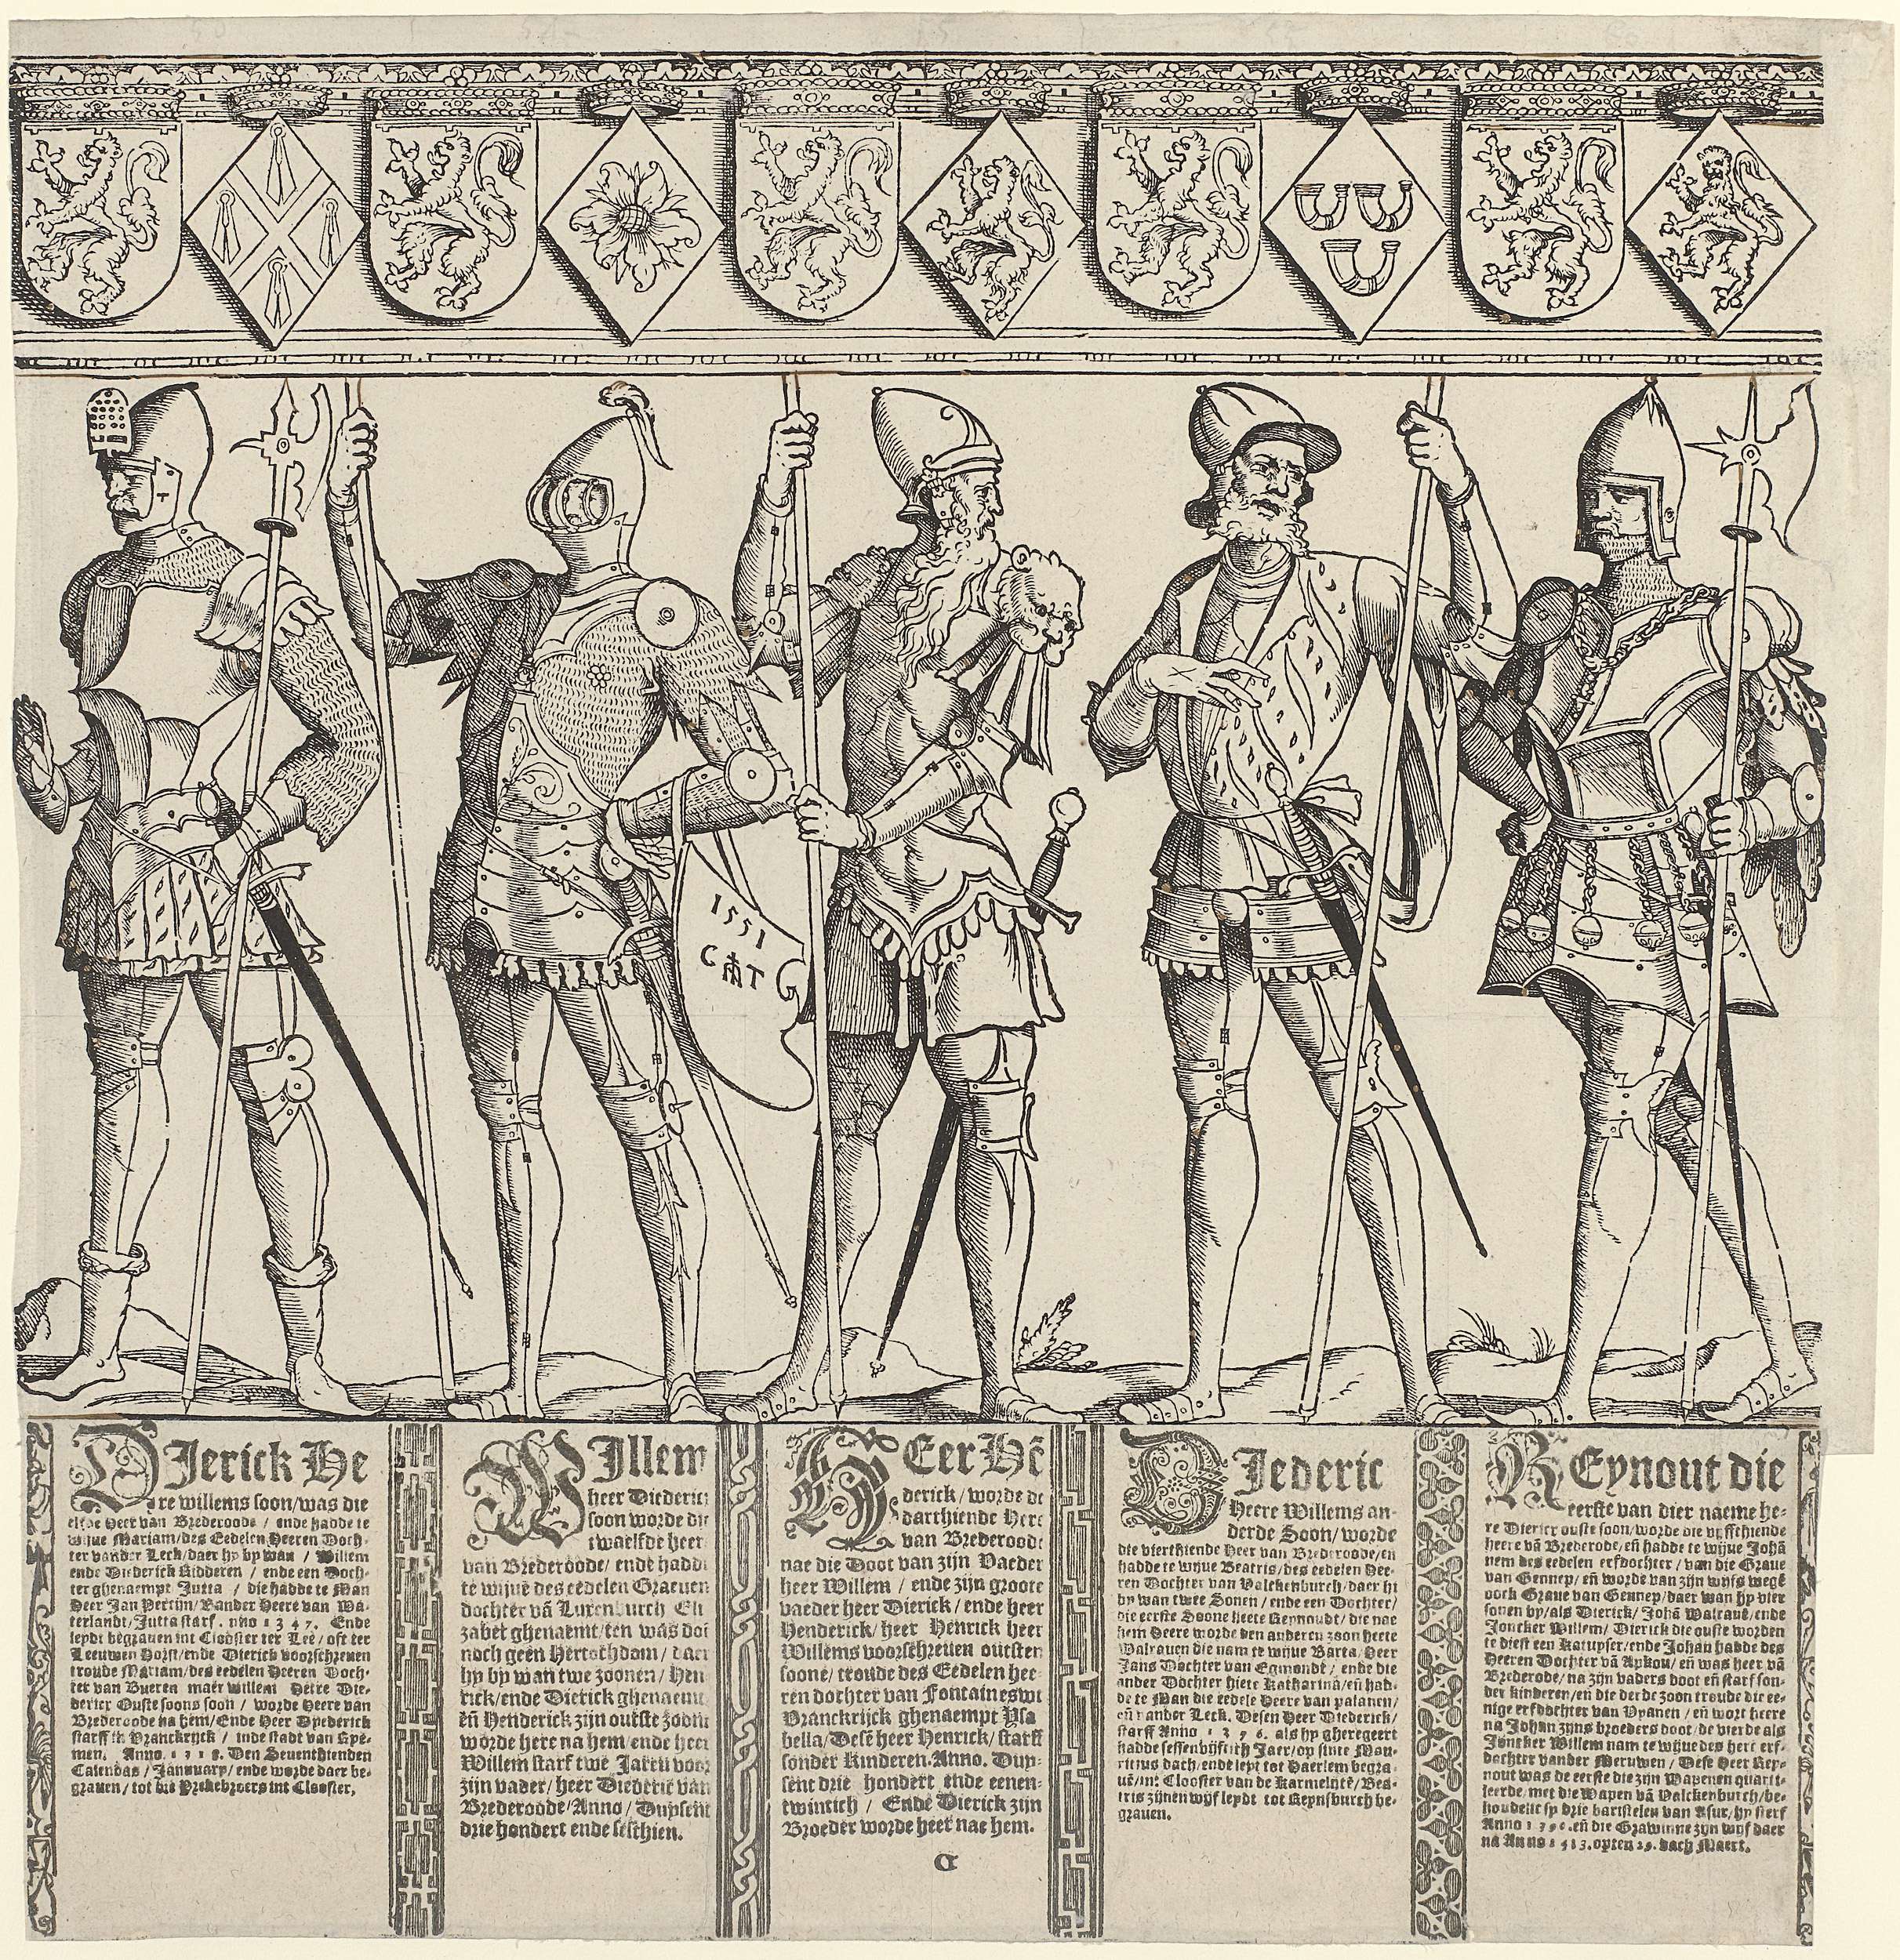 1551
CAT
DJerick He
re willems soon/was die
elfde Heer van Brederoode / ende hadde te
wijue Mariam/des Eedelen Heeren Doch-
ter vander Leck/daer hy by wan / Willem
ende Diederick Ridderen / ende een Doch-
ter ghenaempt Jutta / die hadde te Man
Heer Jan
terlandt/Jutta starf. 1347. Ende
leydt begrauen int Clooster ter Lee/oft ter
Leeuwen Horst/ende Dierick voorschreuen
troude Mariam/des eedelen Heeren Doch-
ter van Bueren maer willem Heere Die-
derick Ouste soons soon / worde Heere van
Brederoode na hem/Ende Heer Dyederick
starff in Vranckrijck / inde stadt van Rye-
men. Anno. Den Seuenthienden
Calendas / Januuary/ ende worde daer be-
grauen / tot die Prekebroers int Clooster.
WIllem
heer Diederic
soon worde die
twaelfde heer
van Brederoode/ ende hadd
te wijue des eedelen Graeuen
dochter vā Lutzenburch Eli
zabet ghenaemt/ten was doe
noch geen Hertochdom / daer
hy by wan twe zoonen/ Hen
rick/ende Dierick ghenaemt
eñ Henderick zijn outste zoon
worde here na hem/ende heer
Willem starf twe Jaren voor
zijn vader/ heer Diederic van
Brederoode/Anno / Duysent
drie hondert ende sesthien.
HEer Hē
derick/worde de
darthiende Here
van Brederoode
nae die Doot van zijn Vaeder
heer Willem / ende zijn groote
vaeder heer Dierick / ende heer
Henderick/ heer Henrick heer
Willems voorschreuen outsten
soone/ troude des Eedelen hee-
ren dochter van
Vranckrijck ghenaempt Ysa
bella/Dese heer Henrick/ starff
sonder Kinderen.Anno. Duy-
sent drie hondert ende eenen-
twintich / Ende Dierick zijn
Broeder worde heer nae hem.
C
DIederic
Heere Willems an-
derde Soon/worde
die vierthiende Heer van Brederoode/eñ
hadde te wijue Beatris/des eedelen Hee-
ren Dochter van Valckenburch/daer hi
by wan twee Sonen / ende een Dochter/
die eerste Soone heete Reynoudt/ die nae
hem Heere worde den anderen zoon heete
Walrauen die nam te wijue Barta/Heer
Jans Dochter van Egmondt / ende die
ander Dochter hiete Katharina/eñ had-
de te Man die eedele Heere van palanen/
eñ vander Leck. Desen Heer Diederick/
starff Anno als hy gheregeert
hadde sessenvijftich Jaer/op sinte Mau-
ritius dach/ende leyt tot Haerlem begra-
uē/int Clooster van de Karmelyte/Bea-
tris zijnen wijf leydt tot Reynsburch be-
grauen.
REynout die
eerste van dier naeme he-
re Dieric ouste soon/worde die vijfthiende
heere vā Brederode/eñ hadde te wijue Johā
nem des eedelen erfdochter / van die Graue
van Gennep/ eñ worde van zijn wijfs wege
oock Graue van Gennep/daer wan hy vier
sonen by/als Dierick/ Johā Walrauē/ende
Joncker Willem/ Dierick die ouste worden
te diest een Katuyser/ende Johan hadde des
Heeren Dochter vā Apkou/ eñ was heer vā
Brederode/ na zijn vaders doot eñ starf son-
der kinderen/eñ die derde zoon troude die ee-
nige erfdochter van Vyanen / eñ wort heere
na Johan zijns broeders doot/de vierde als
Joncker Willem nam te wijue des here erf-
dochter vander Meruwen / Dese Heer Rey-
nout was de eerste die zijn Wapenen quarti-
leerde/met die Wapen vā Valckenburch/be-
houdelic sp drie barstelen van Asur/hy sterf
Anno eñ die Grauinne zyn wyf daer
na Anno 1413. opten 29. dach Maert.